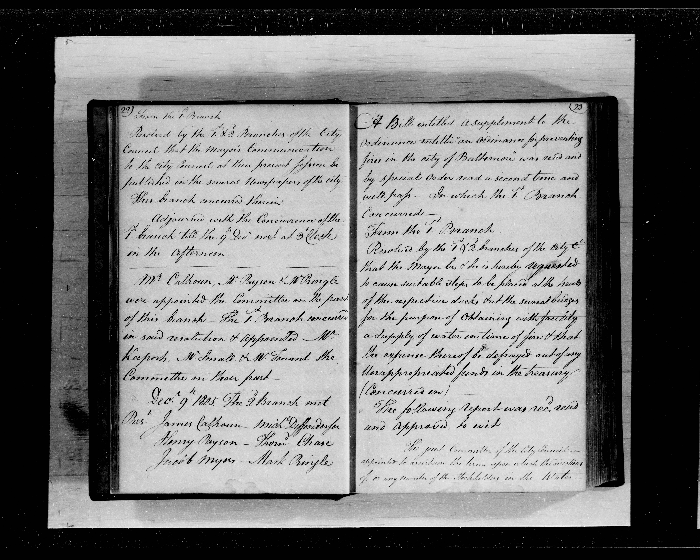 22
From the 1st Branch
Resolved by the 1st & 2d Branches of the City
Council that the Mayor's Communication
to the city Council at their present session be
published in the several Newspapers of the city
This branch concurred therein
Adjourned with the Concurrence of the
1st branch till the 9th Decr next at 3 OClock
in the afternoon
Mr Calhoun, Mr Payson & Mr Pringle
were appointed the Committee on the part
of this branch The 1st Branch concurred
in said resolution & appointed Mr
Mr Small & Mr the
Committee on their part
Decr 9th 1805 The 2d Branch met
Prest James Calhoun Michl Diffenderfer
Henry Payson Thorn Chase
Jacob Myers Mark Pringle
23
A Bill entitled a supplement to the
ordinance entitled an ordinance for preventing
fires in the city of Baltimore was read and
by special order read a second time and
will pass. In which the 1st Branch
Concurred
From the 1st Branch
Resolved by the 1st & 2d branches of the City C
that the Mayor be & he is hereby requested
to cause suitable steps to be placed at the heads
of the respective docks and the several bridges
for the purpose of obtaining with facility
a supply of water in time of fire & that
the expence thereof be defrayed out of any
Unappropriated funds in the treasury
(Concurred in)
The following report was recd. read
and approved to wit
The joint Committee of the City Council
appointed to ascertain the terms upon which the
of or any number of the Stockholders in the Water